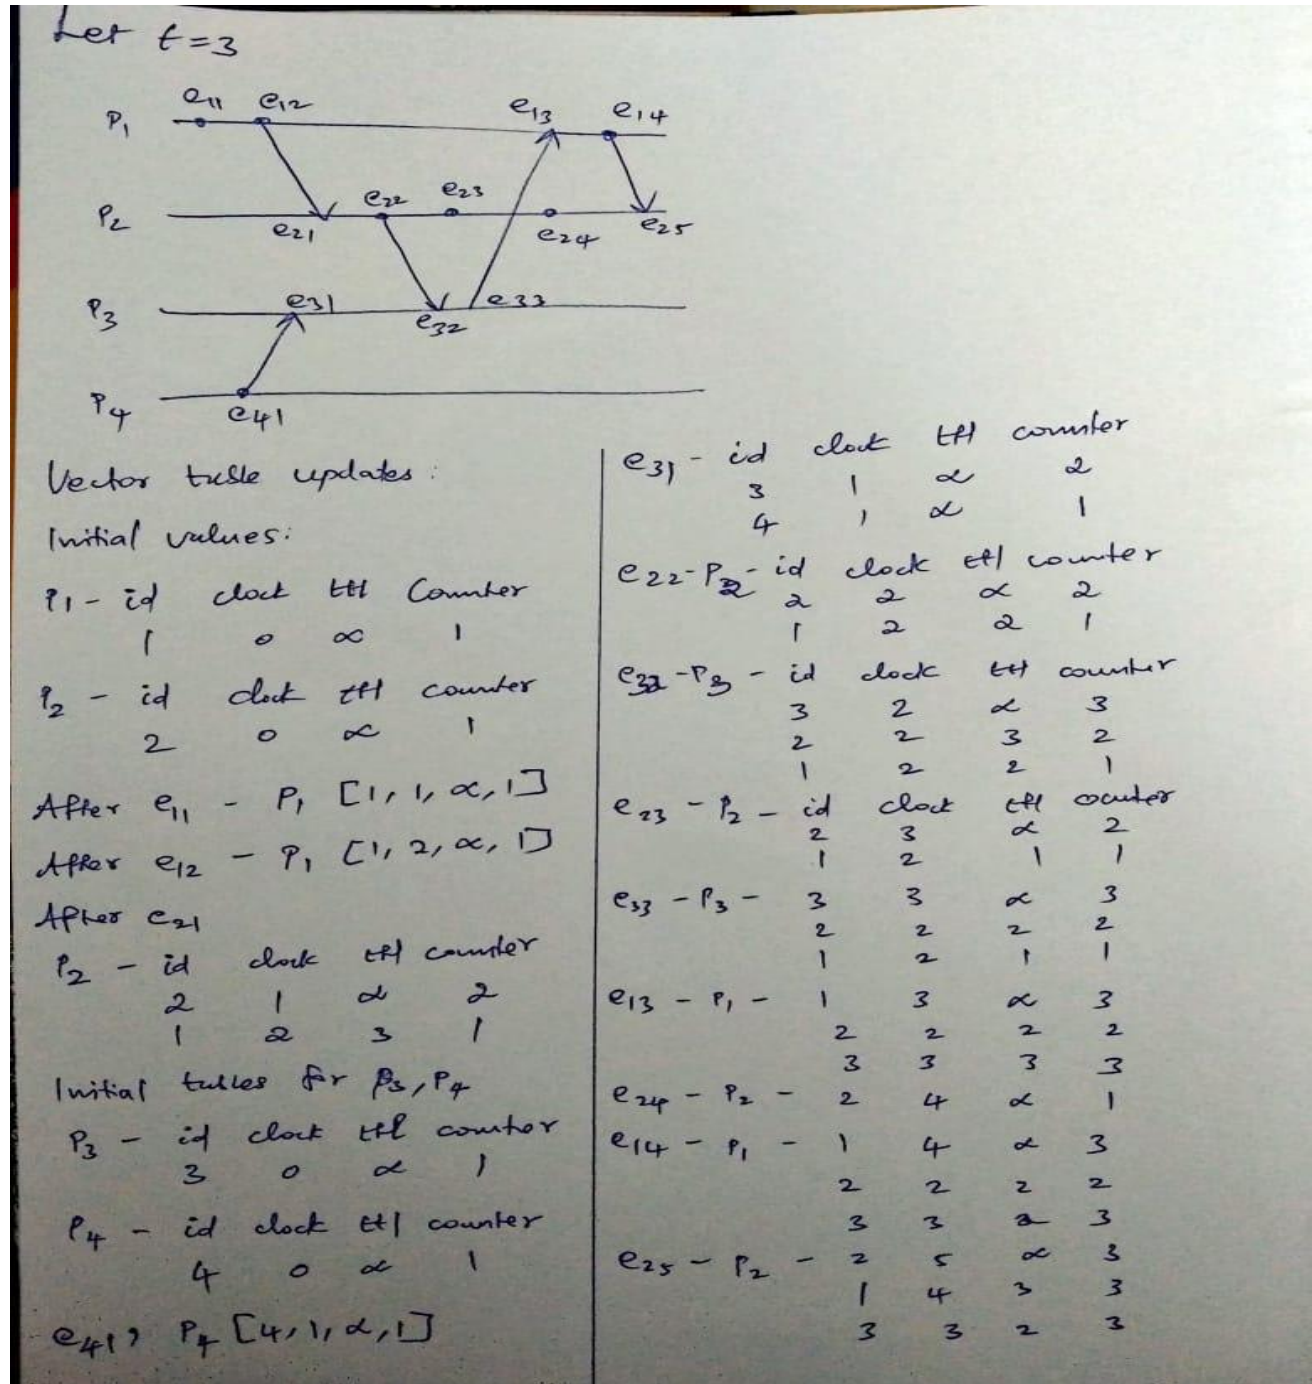 Let t=3
e11 e12 e13 e14
P1
e22 e23
P2
e21 e24 e25
e31 e33
P3
e32
P4
e41
Vector table updates:
Initial values:
P1 - id clock ttl Counter
1 0 ∝ 1
P2 - id clock ttl counter
2 0 ∝ 1
After e11 - P1 [1, 1, ∝, 1]
After e12 - P1 [1, 2, ∝, 1]
After e21
P2 - id clock ttl counter
2 1 ∝ 2
1 2 3 1
Initial tables for P3, P4
P3 - id clock ttl counter
3 0 ∝ 1
P4 - id clock ttl counter
4 0 ∝ 1
e41, P4 [4, 1, ∝, 1]
e31 - id clock ttl counter
3 1 ∝ 2
4 1 ∝ 1
e22 - P2 - id clock ttl counter
2 2 ∝ 2
1 2 2 1
e32 - P3 - id clock ttl counter
3 2 ∝ 3
2 2 3 2
1 2 2 1
e23 - P2 - id clock ttl counter
2 3 ∝ 2
1 2 1 1
e33 - P3 - 3 3 ∝ 3
2 2 2 2
1 2 1 1
e13 - P1 - 1 3 ∝ 3
2 2 2 2
3 3 3 3
e24 - P2 - 2 4 ∝ 1
e14 - P1 - 1 4 ∝ 3
2 2 2 2
3 3 2 3
e25 - P2 - 2 5 ∝ 3
1 4 3 3
3 3 2 3